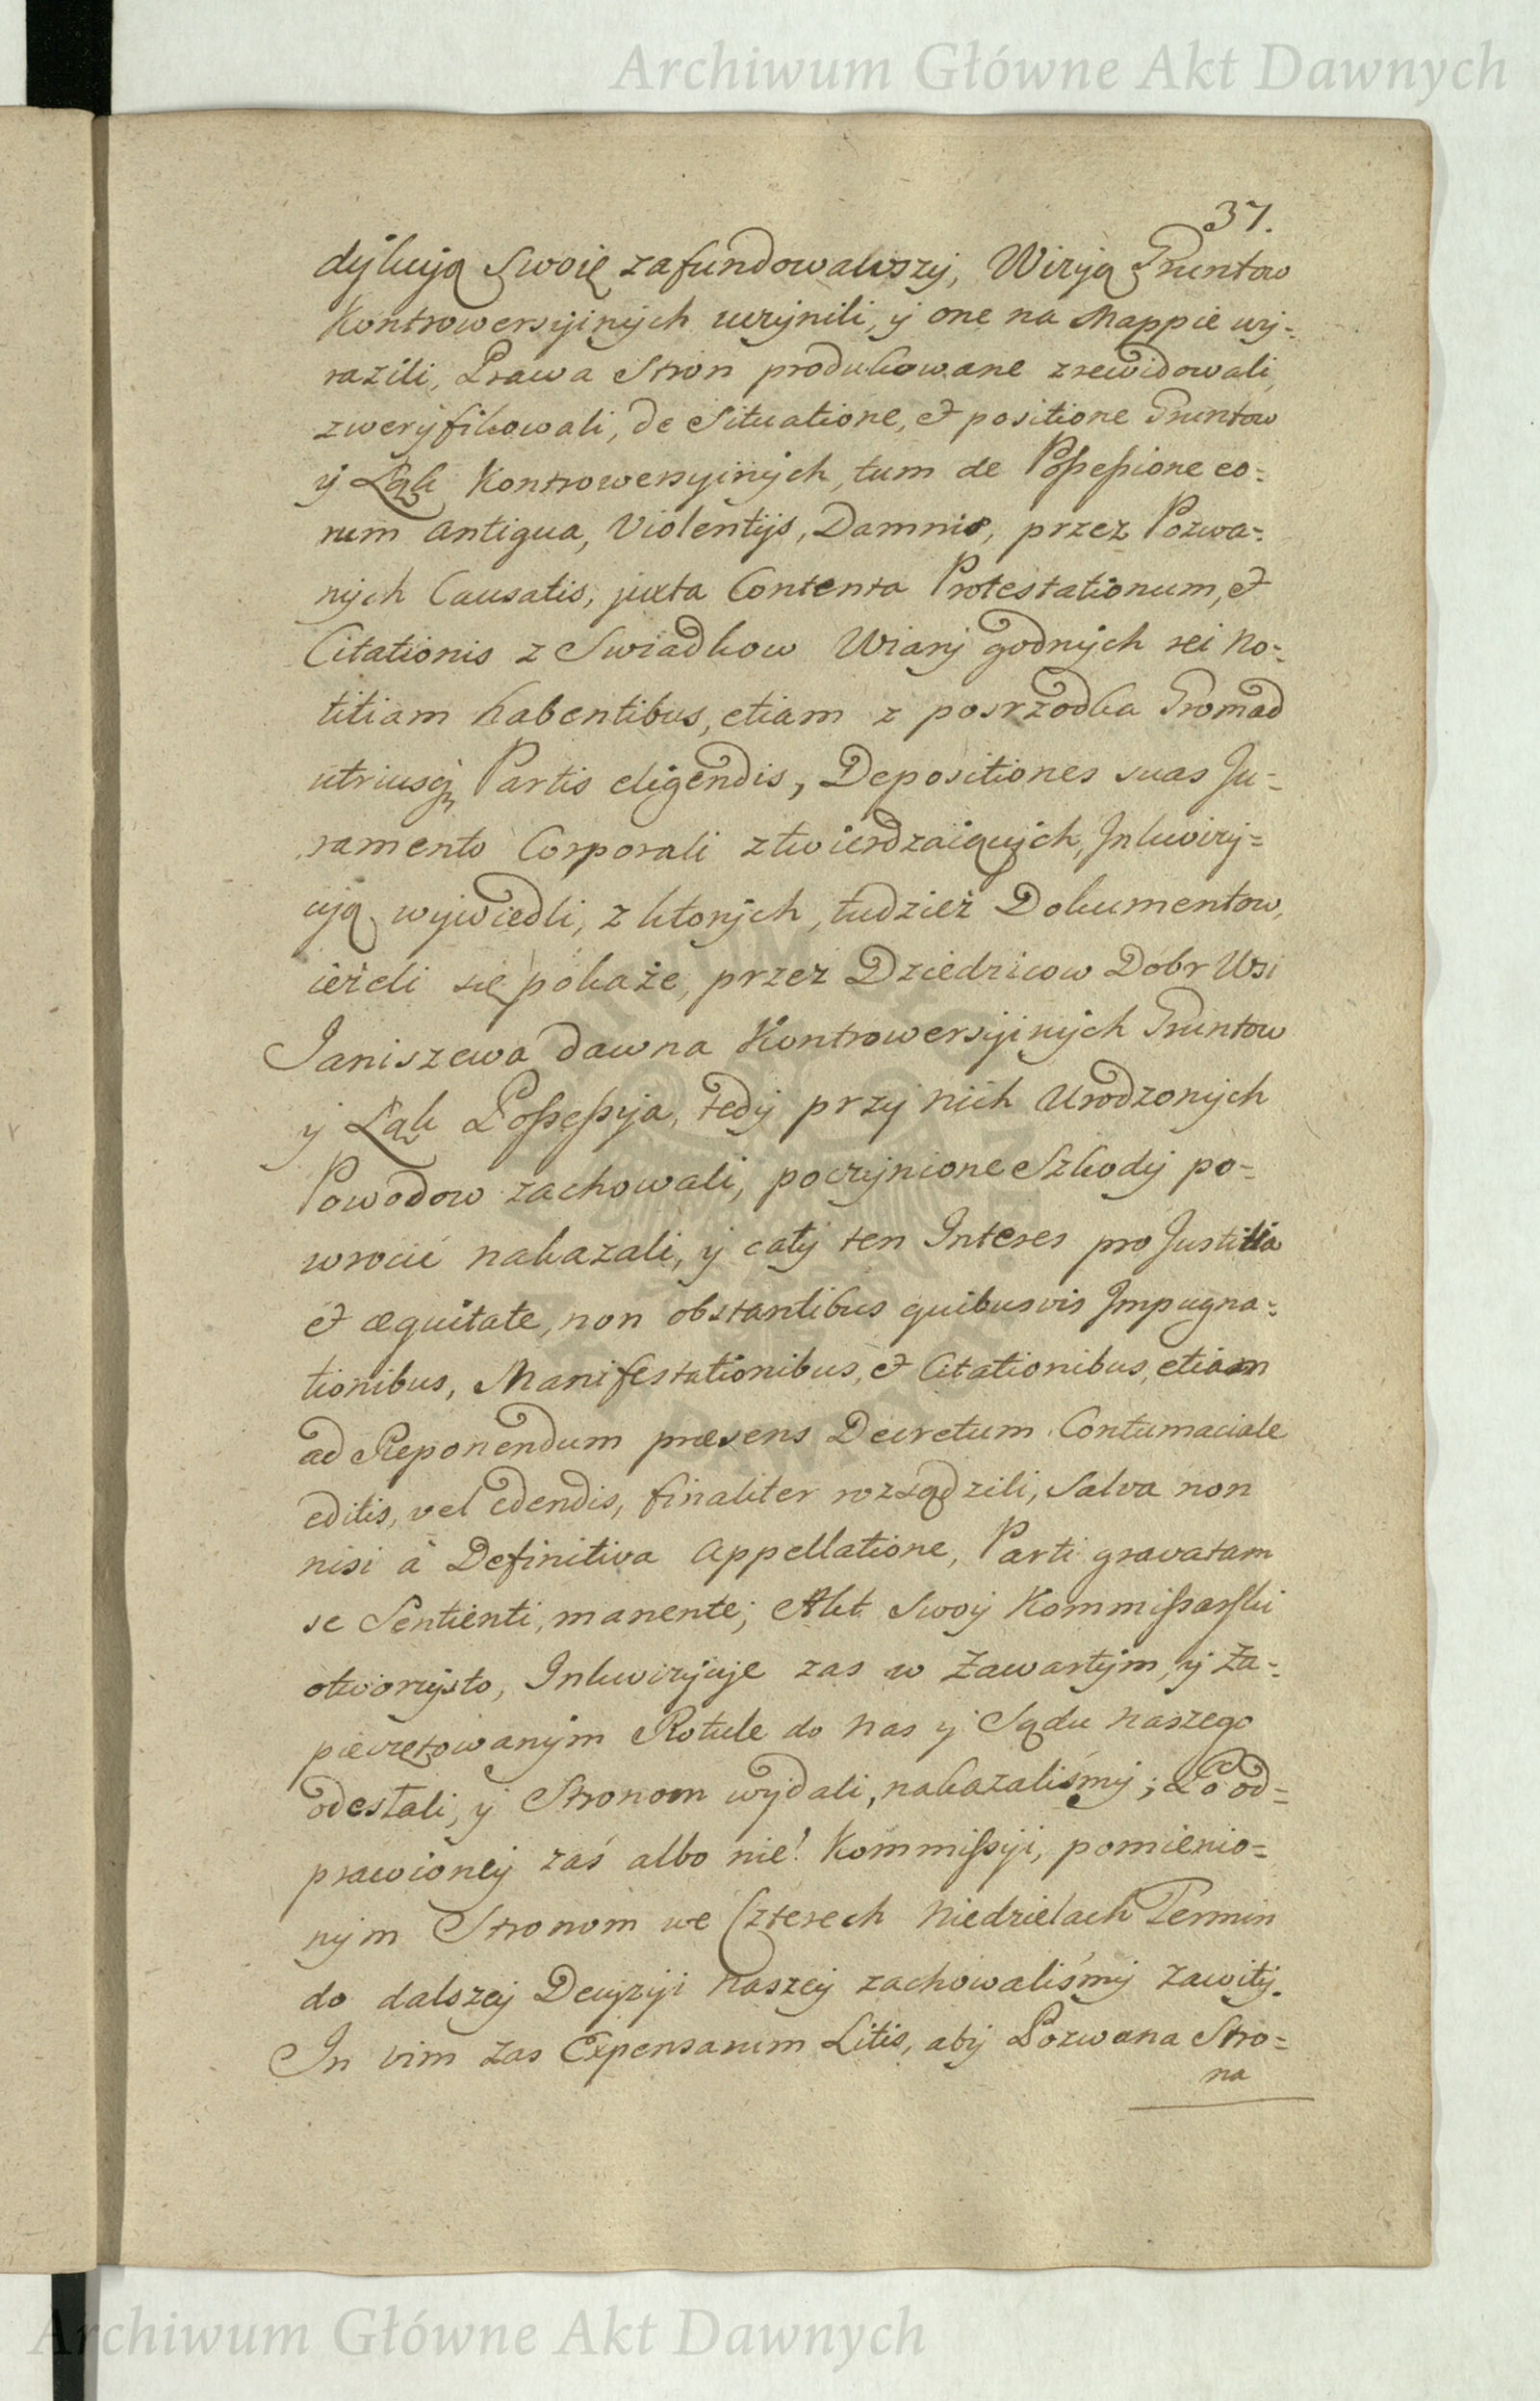 Archiwum Główne Akt Dawnych
37.
dykcyją Swoię zafundowawszy, Wizyą Gruntow
Kontrowersyinych uczynili, y one na Mappie wy=
razili, Prawa Stron produkowane zrewidowali,
zweryfikowali, de Situatione, et positione Gruntow
y Łąk Kontrowersyinych, tum de Possessione eo=
rum antiqua, Violentijs, Damnis, przez Pozwa=
nych Causatis, juxta Contenta Protestationum, et
Citationis z Swiadkow Wiary godnych rei No=
titiam habentibus, etiam z posrzodka Gromad
utriusq; Partis eligendis, Depositiones suas Ju=
ramento Corporali ztwierdzaiących, Inkwizy=
cyją wywiedli, z ktorych, tudzież Dokumentow,
ieżeli się pokaże, przez Dziedzicow Dobr Wsi
Janiszewa dawna Kontrowersyinych Gruntow
y Łąk Possessyja, tedy przy nich Urodzonych
Powodow zachowali, poczynione Szkody po=
wrocić nakazali, y cały ten Interes pro Justitia
et æquitate, non obstantibus quibusvis Impugna=
tionibus, Manifestationibus, et Citationibus, etiam
ad Reponendum præsens Decretum Contumaciale
editis, vel edendis, finaliter rozsądzili, Salva non
nisi à Definitiva Appellatione, Parti gravatam
se Sentienti, manente; Akt Swoy Kommissarski
otworzysto, Inkwizycyje zas w Zawartym, y Za=
pieczętowanym Rotule do Nas y Sądu Naszego
odesłali, y Stronom wydali, nakazaliśmy; Po od=
prawioney zaś albo nie! Kommissyi, pomienio=
nym Stronom we Czterech Niedzielach Termin
do dalszey Decyzyi Naszey zachowaliśmy Zawity.
In vim Zas Expensarum Litis, aby Pozwana Stro=
na
Archiwum Główne Akt Dawnych